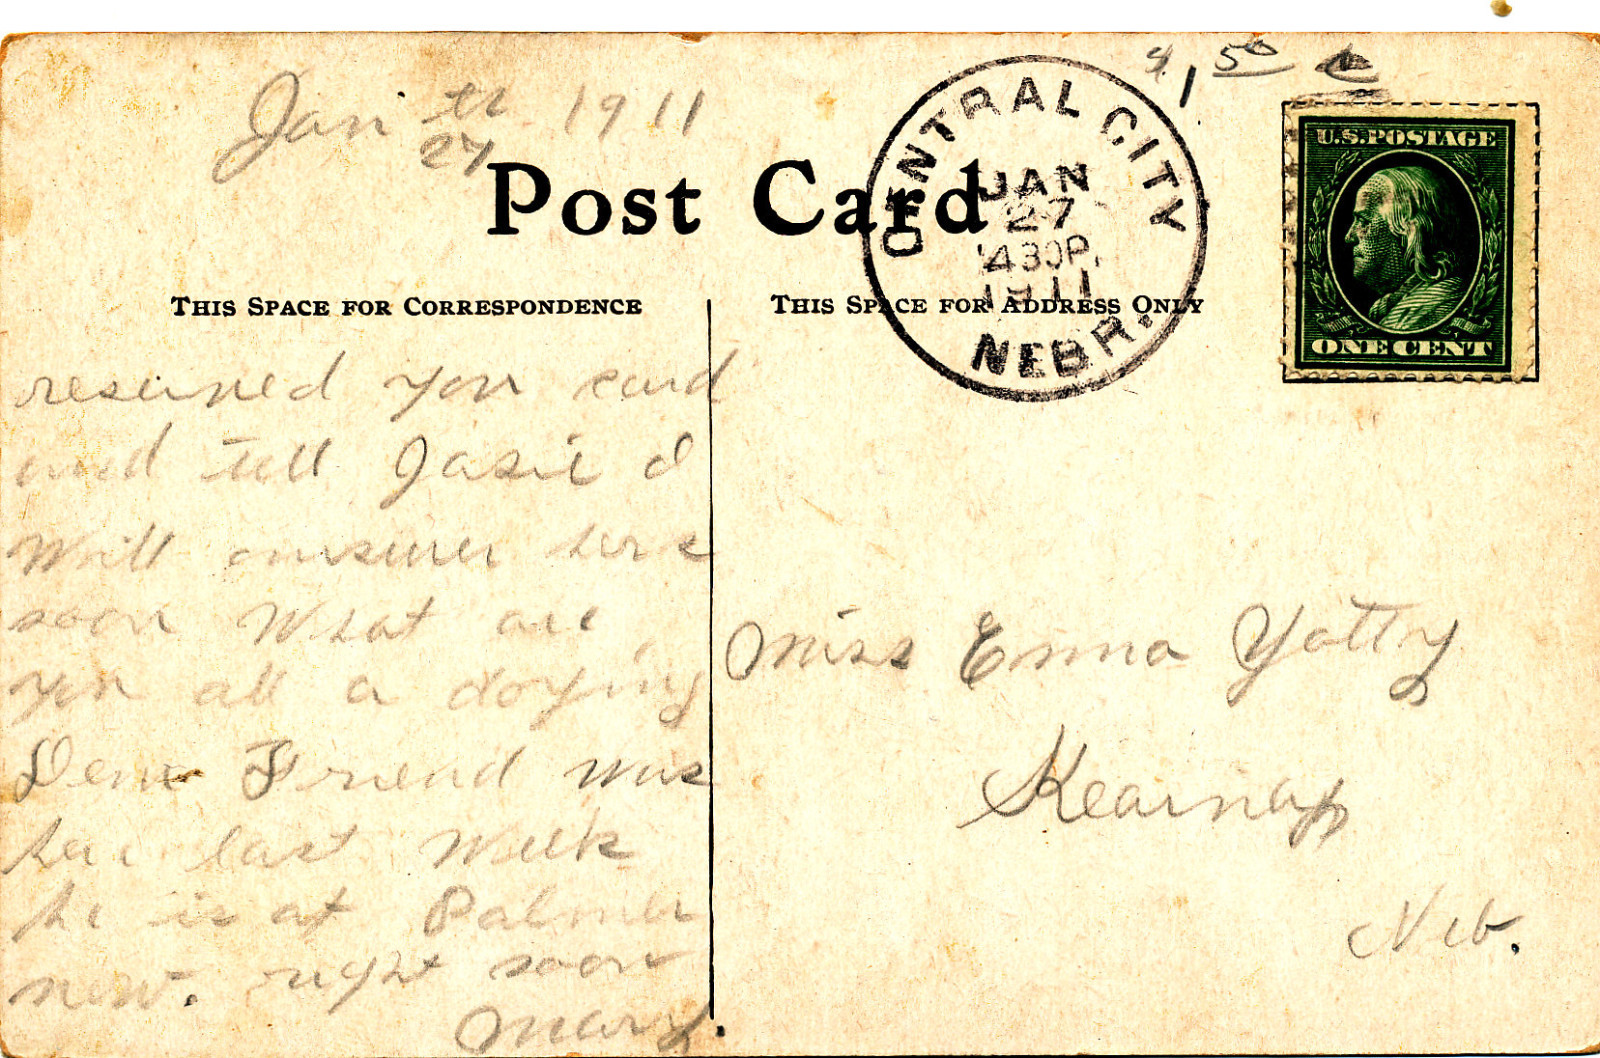 Jan 27th 1911
4.50
Post Card
CENTRAL CITY
JAN
27
430P.
1911
NEBR.
U.S. POSTAGE
ONE CENT
THIS SPACE FOR CORRESPONDENCE
THIS SPACE FOR ADDRESS ONLY
reseived you card
and tell Josie I
Will answer hers
soon What are
you all a doying
Dena Friend was
here last Week
he is at Palmer
now. right soon
Mary.
Miss Emma Yotty
Kearney
Neb.